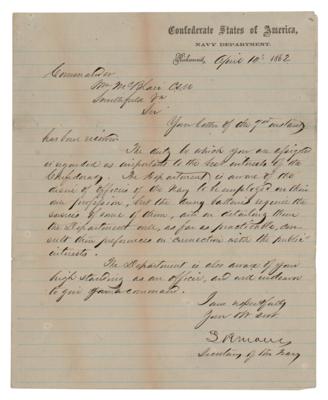 Confederate States of America,
NAVY DEPARTMENT.
Richmond, April 10th 1862
Commander
Wm McBlair CSN
Smithfield Va
Sir
Your letter of the 7th instant
has been received
The duty to which you are assigned
is regarded as important to the best interests of the
Confederacy. The Department is aware of the
desire of officers of the Navy to be employed in their
own profession, but the Army batteries require the
services of some of them, and in detailing them
the Department will, as far as practicable, con-
sult their preferences in connection with the public
interests.
The Department is also aware of your
high standing as an officer, and will endeavor
to give you a command.
I am respectfully
Your Obt Servt
S R Mallory
Secretary of the Navy